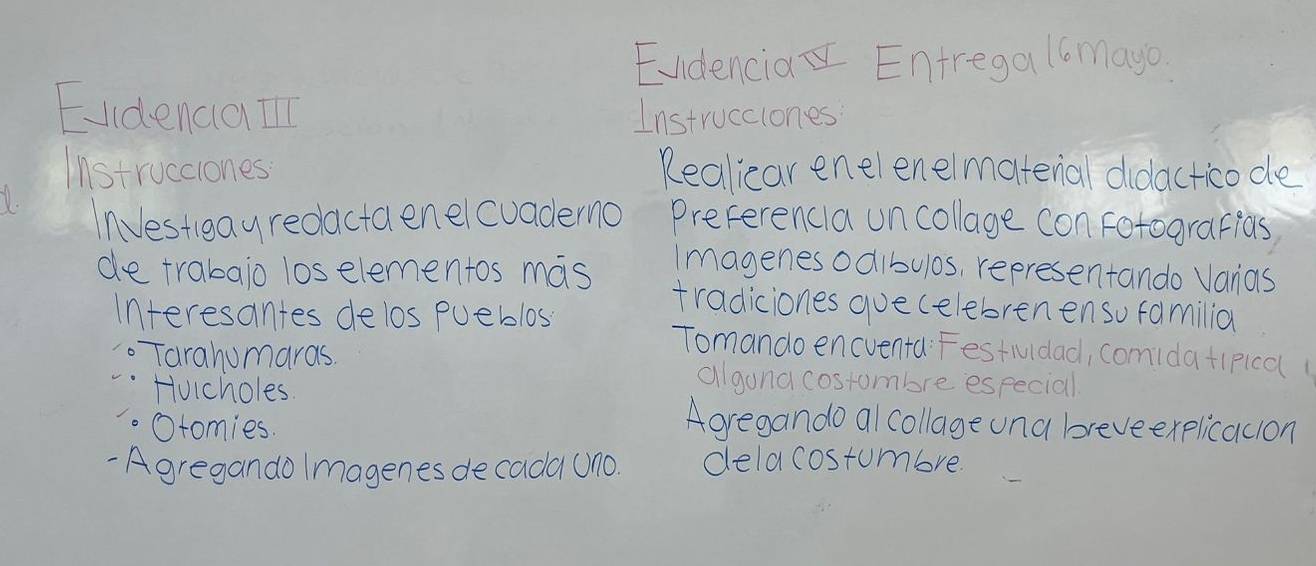 Evidencia III
Instrucciones:
Investiga y redacta en el cuaderno
de trabajo los elementos más
Interesantes de los Pueblos
• Tarahumaras.
• Huicholes.
• Otomies.
- Agregando Imagenes de cada uno.
Evidencia IV Entrega 16 mayo.
Instrucciones:
Realizar en el en el material didactico de
Preferencia un collage con Fotografias,
Imagenes o dibujos, representando Varias
tradiciones que celebren en su familia
Tomando en cuenta: Festividad, comida tipica
alguna costombre especial.
Agregando al collage una breve explicacion
de la costumbre.